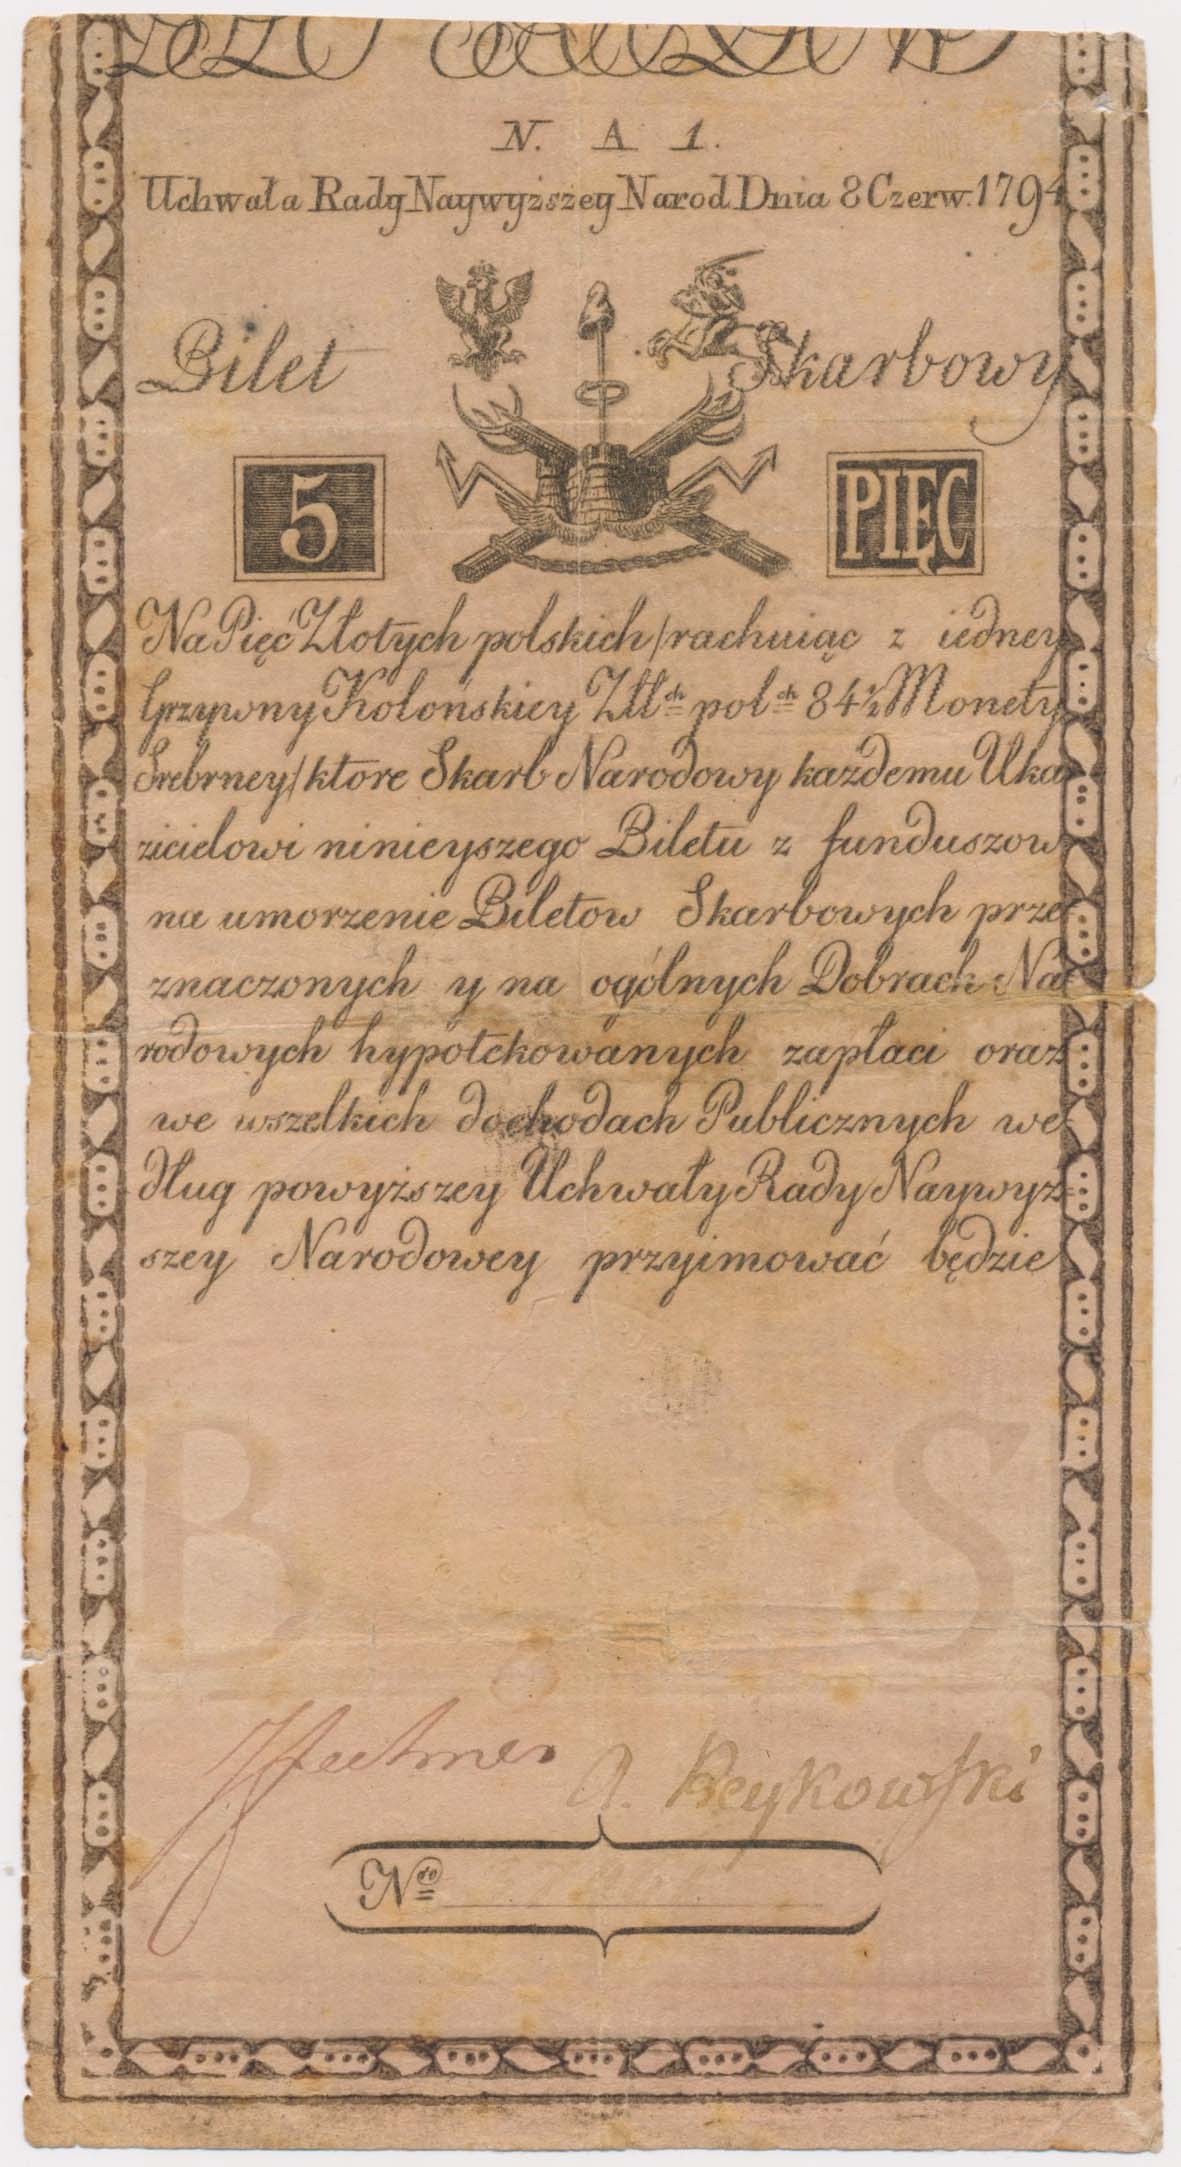 N. A 1.
Uchwała Rady Naywyższey Narod. Dnia 8 Czerw. 1794
Bilet Skarbowy
5 PIĘC
Na Pięć Złotych polskich /rachuiąc z iedney
Grzywny Kolońskiey Złł ch pol ch 84 ½ Monety
Srebrney/ ktore Skarb Narodowy każdemu Uka
zicielowi ninieyszego Biletu z funduszow
na umorzenie Biletow Skarbowych prze
znaczonych y na ogólnych Dobrach Na
rodowych hypotekowanych zapłaci oraz
we wszelkich dochodach Publicznych we
dług powyższey Uchwały Rady Naywyż=
szey Narodowey przyimować będzie
B S
A. Reykowski
N do